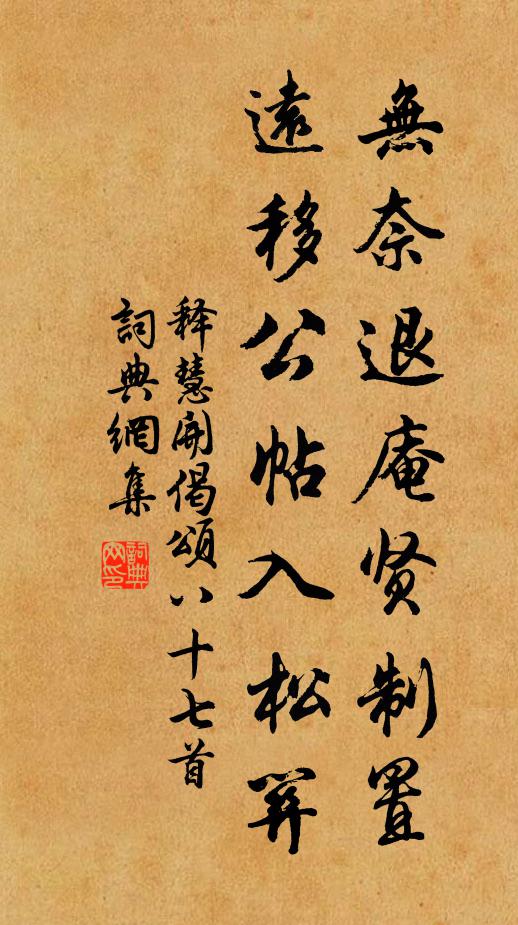 無奈退庵贤制置
遠移公帖入松關
释慧開偈頌八十七首
詞典網集
詞典網印